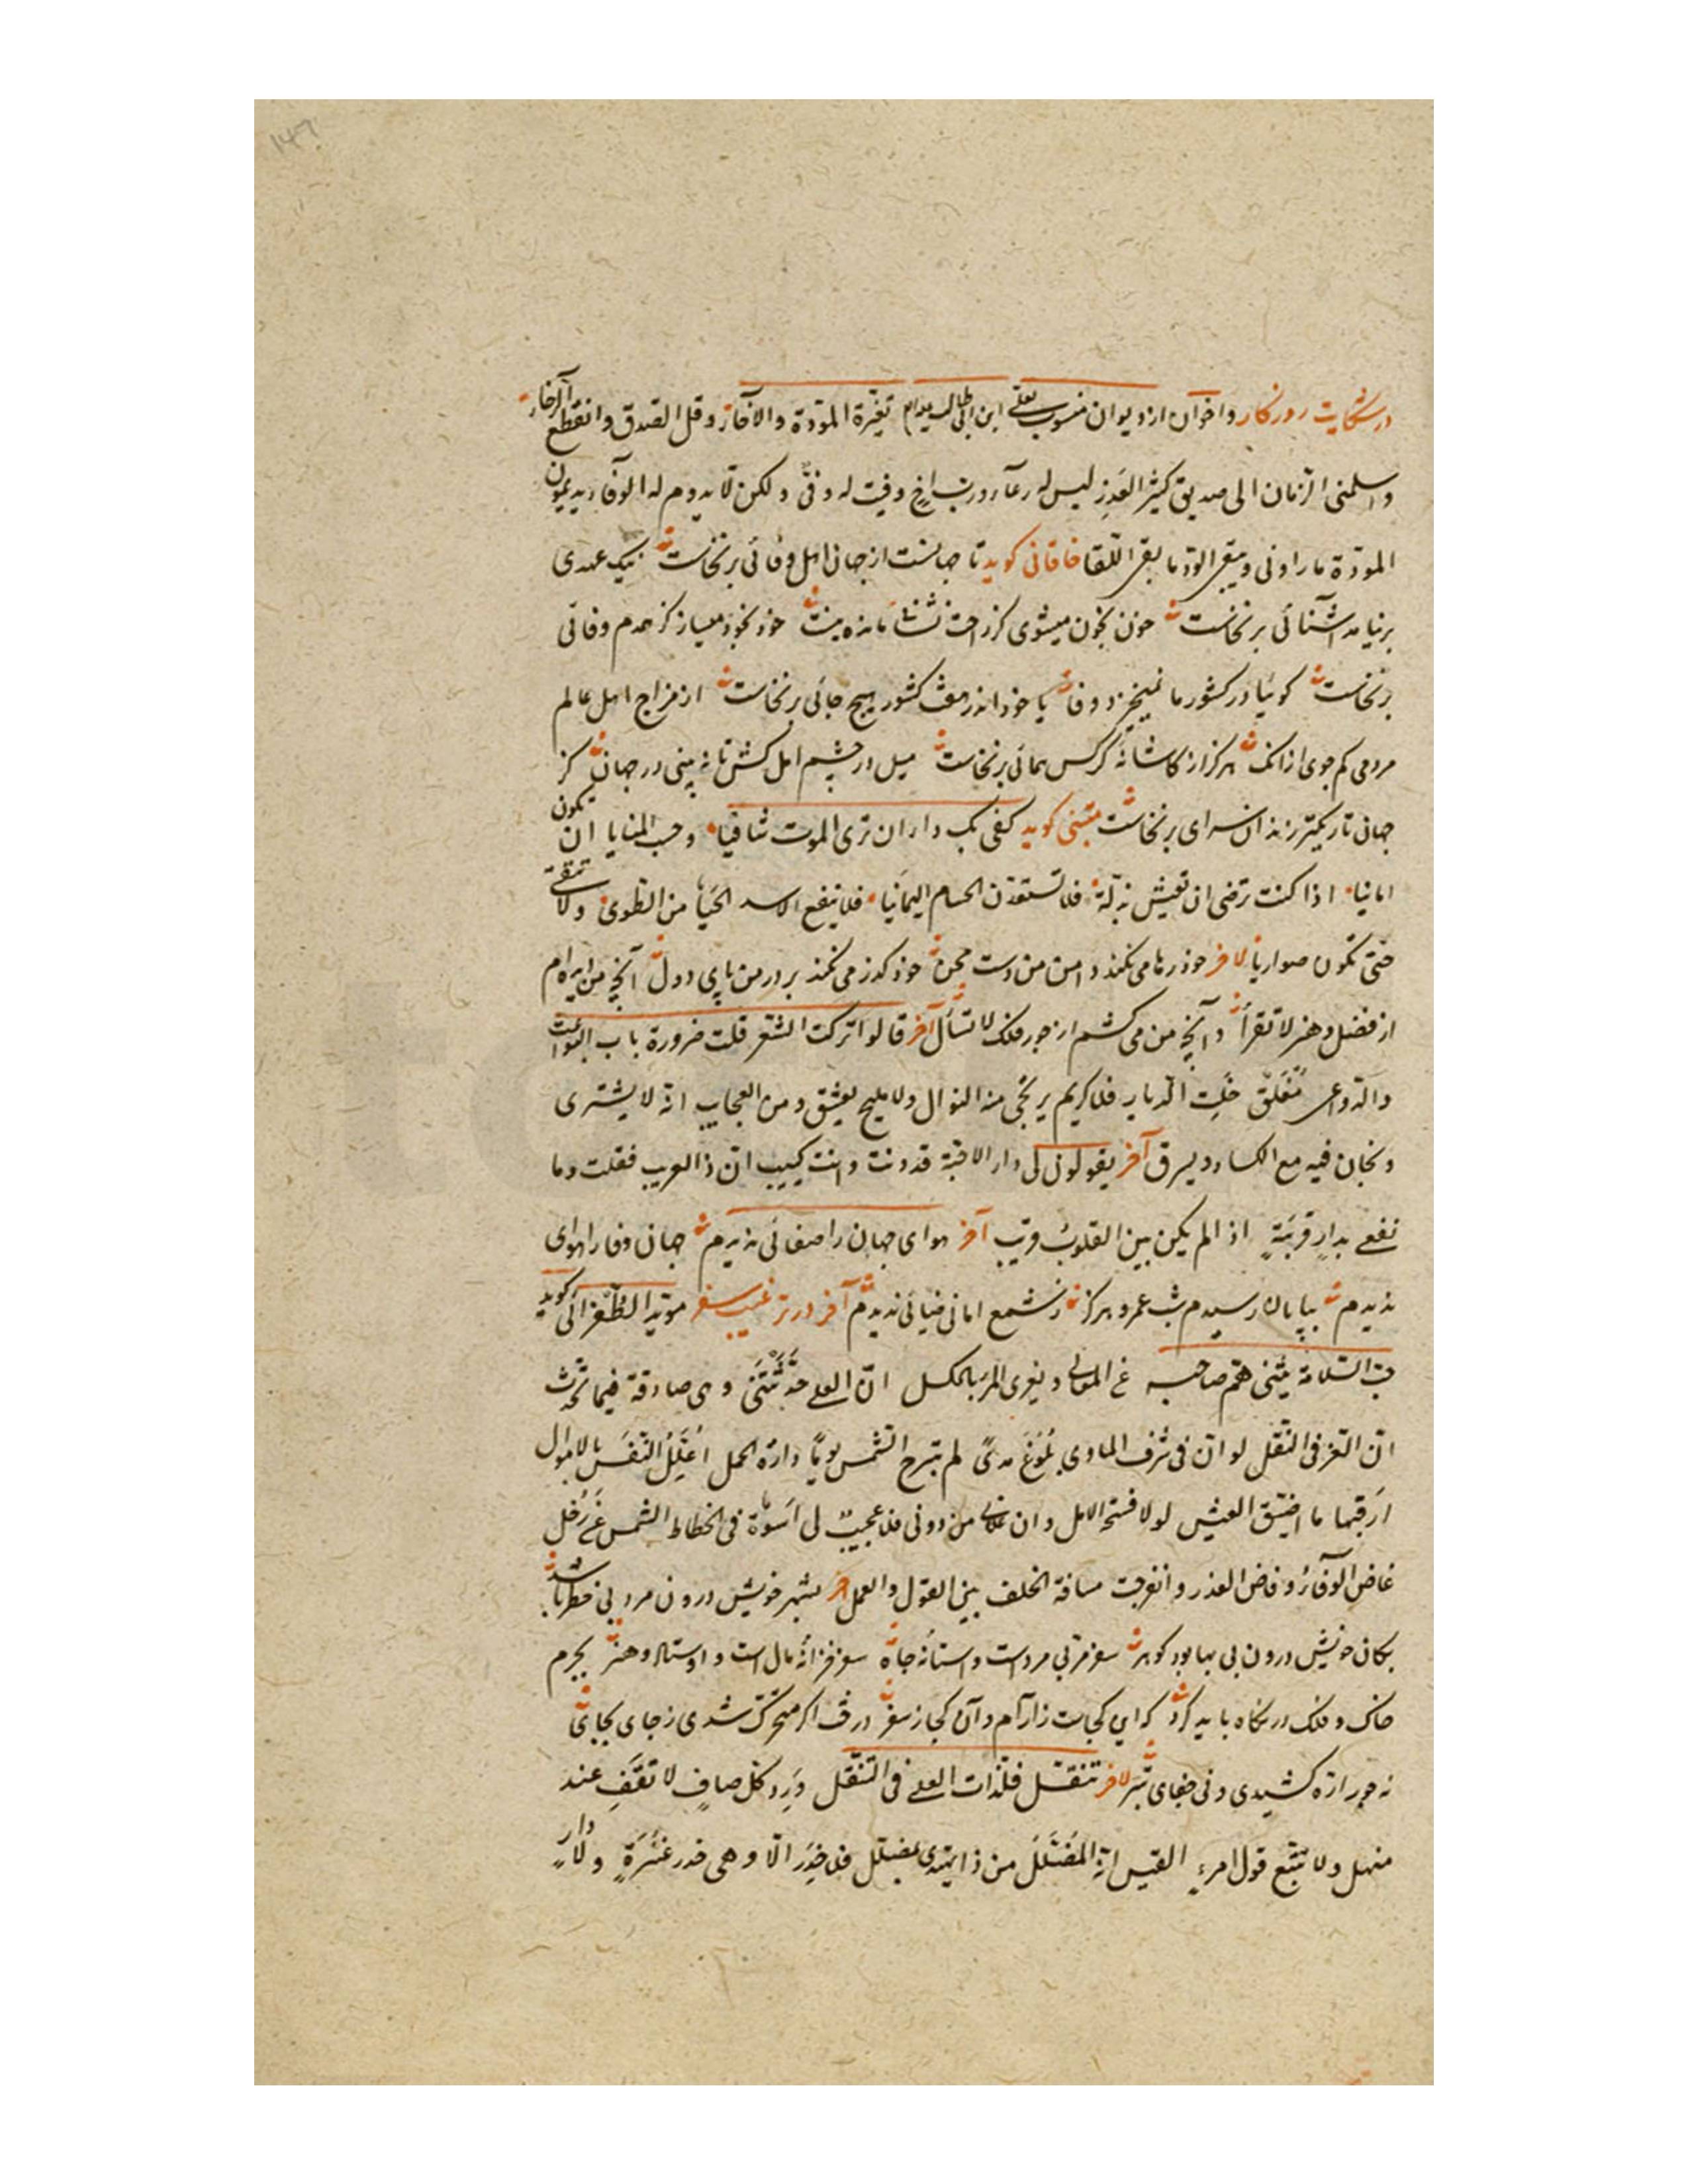 در شکایت روزکار و اخوان از دیوان منسوب بعلی ابن ابی طالب تغیّرة المودّة والاخآء وقل الصدق وانقطع الرجاء
واسلمنی الزمان الی صدیق کثیر الغدر لیس له رعآء ورب اخ وفیت له وفیّ ولکن لا یدوم له الوفاء یدیمون
المودّة ما راونی ویبقی الود ما بقی اللقا خاقانی کوید تا جهانست از جهان اهل وفائی برنخاست نیک عهدی
برنیامد آشنائی برنخاست خون بخون میشوی کز راحت نشانی مانده نیست خود بخود میساز کز همدم وفائی
برنخاست کوئیا در کشور ما نمیخیزد وفا یا خود اندر هفت کشور هیچ جائی برنخاست از مزاج اهل عالم
مردمی کم جوی از انک هرکز از کاشانهٔ کرکس همائی برنخاست میل در چشم امل کش تا نه بینی در جهان کز
جهان تاریکتر زندان سرای برنخاست متنبی کوید کفی بک داء ان تری الموت شافیا وحسب المنایا ان یکون
امانیا اذا کنت ترضی ان تعیش بذلّة فلا تستعدّن الحسام الیمانیا فلا ینفع الاسد الحیاء من الطوی ولا تتقی
حتّی تکون ضواریا لاخر خود رها می نکند دامن من دست محن خود کذر می نکند بر در من پای دول آنچه من
از فضل و هنر لا تقرأ و آنچه من می کشم از جور فلک لا تسأل آخر قالوا ترکت الشعر قلت ضرورة باب البواعث
والدّواعی مُغلَق خلت الدیار فلا کریم یرتجی منه النوال ولا ملیح یعشق ومن العجایب انّه لا یشتری
ویخان فیه مع الکساد ویسرق آخر یقولون لی دار الاحبّة قد دنت وانت کییب انّ ذا لعجیب فقلت وما
نفعی بدارٍ قریبةٍ اذا لم یکن بین القلوب قریب آخر هوای جهان را صفائی ندیدم جهان وفا را هوای
ندیدم بپایان رسیدم شب عمر و هرکز ز شمع امانی ضیائی ندیدم آخر در ترغیب سفر مویّد الطغرائی کوید
حبّ السّلامة یثنی همّ صاحبه عن المعالی ویغری المرء بالکسل انّ العلی حدّثتنی وهی صادقة فیما تحدّث
انّ العز فی النقل لو انّ فی شرف الماوی بلوغ مدیً لم تبرح الشمس یومًا دارة الحمل اعلّل النفس بالامال
ارقبها ما اضیق العیش لولا فسحة الامل وان علانی من دونی فلا عجبٌ لی اسوة فی انحطاط الشمس عن زحل
غاض الوفاء وفاض الغدر وانفرجت مسافة الخلف بین القول والعمل آخر بشهر خویش درون مردم بی خطر باشد
بکان خویش درون بی بها بود کوهر سفر مربی مردست و آستانهٔ جاه سفر خزانهٔ مال است و اوستاد هنر بجرم
خاک و فلک در نکاه باید کرد که این کجاست ز آرام و آن کجا ز سفر درخت اکر متحرک شدی ز جای بجای
نه جور اره کشیدی و نی جفای تبر لاخر تنقّل فلذّات العلی فی التنقّل وَرِد کل صافٍ لا تقف عند
منهل ولا تتبع قول امرءٍ القیس انه المضلّل من ذا یهتدی بمضلل فلا خِدَر الّا وهی خدر عُنَیزةٍ ولا دار